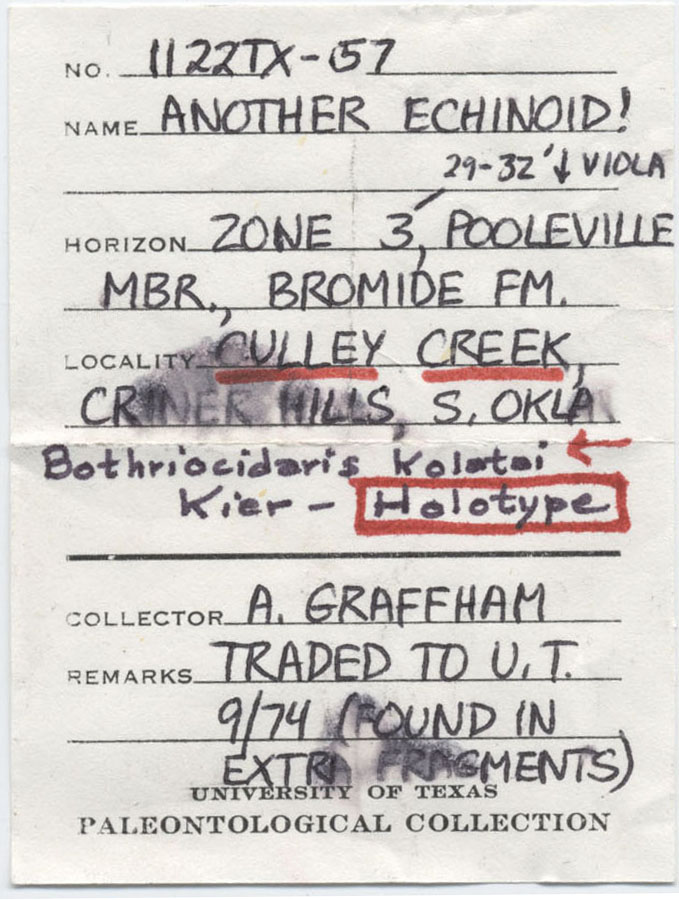 NO. 1122TX-57
NAME ANOTHER ECHINOID!
29-32' ↓ VIOLA
HORIZON ZONE 3, POOLEVILLE
MBR., BROMIDE FM.
LOCALITY CULLEY CREEK,
CRINER HILLS, S. OKLA
Bothriocidaris Kolatai ←
Kier - Holotype
COLLECTOR A. GRAFFHAM
REMARKS TRADED TO U.T.
9/74 (FOUND IN
EXTRA FRAGMENTS)
UNIVERSITY OF TEXAS
PALEONTOLOGICAL COLLECTION